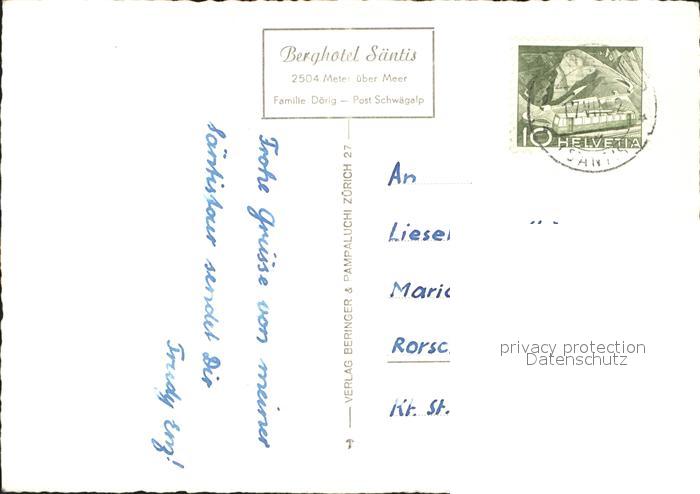 Berghotel Säntis
2504 Meter über Meer
Familie Dörig — Post Schwägalp
10 HELVETIA
SÄNTIS
Frohe Grüsse von meiner
Säntistour sendet Dir
Trudy Enz!
VERLAG BERINGER & PAMPALUCHI ZÜRICH 27
An
Liesel
Maria
Rorsc
Kt. St.
privacy protection
Datenschutz